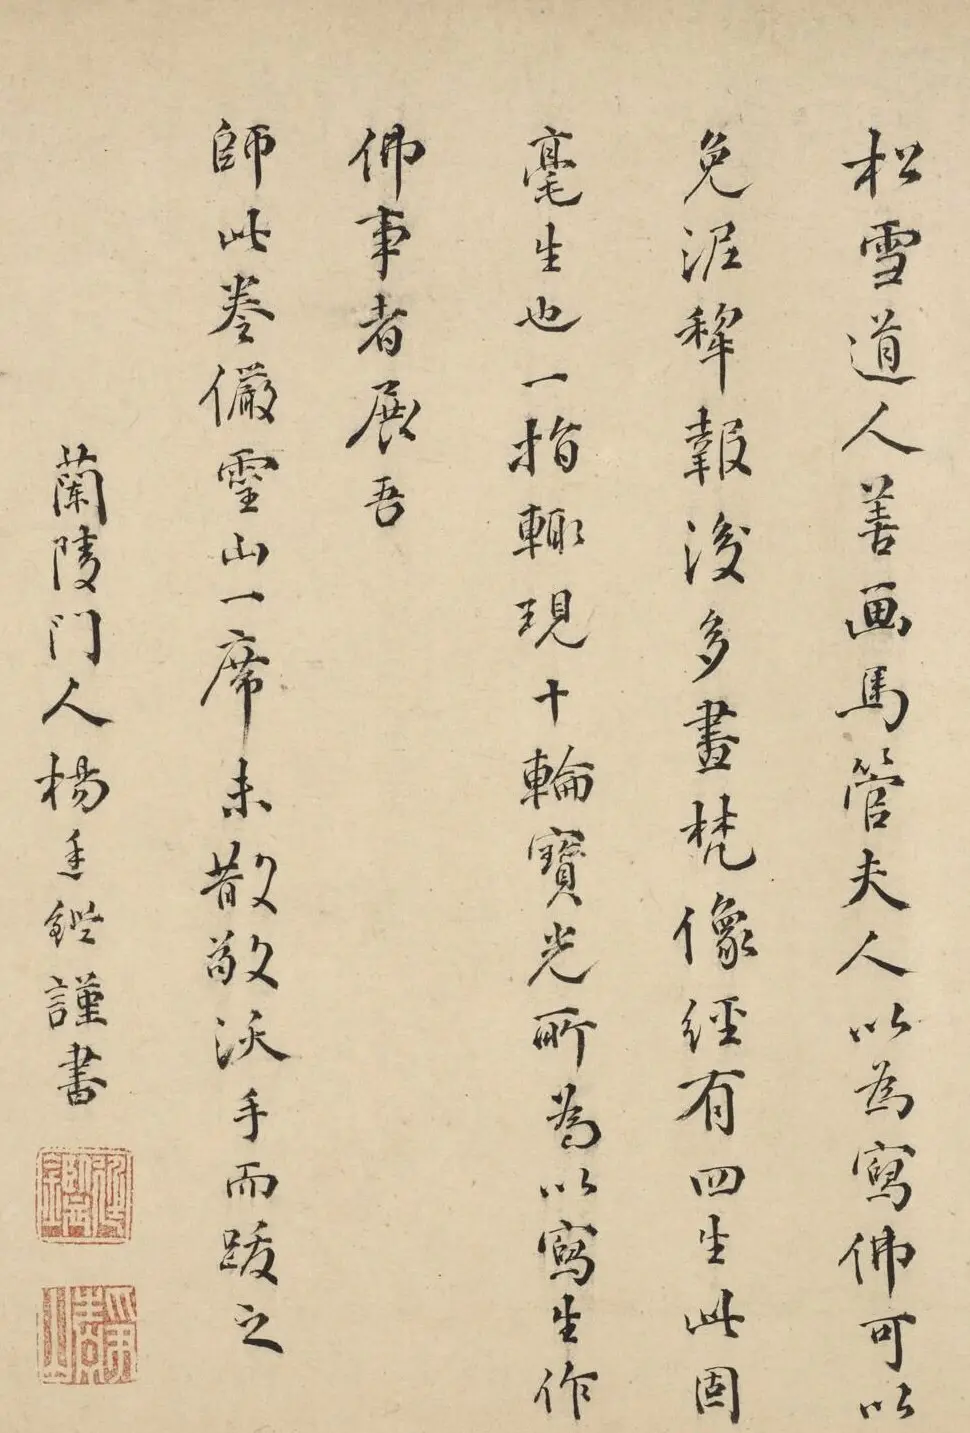 松雪道人善画馬管夫人以為寫佛可以
免泥犂報後多畫梵像經有四生此固
毫生也一指輙現十輪寶光所為以寫生作
佛事者展吾
師此卷儼靈山一席未散敬沃手而跋之
蘭陵門人楊廷鑑謹書